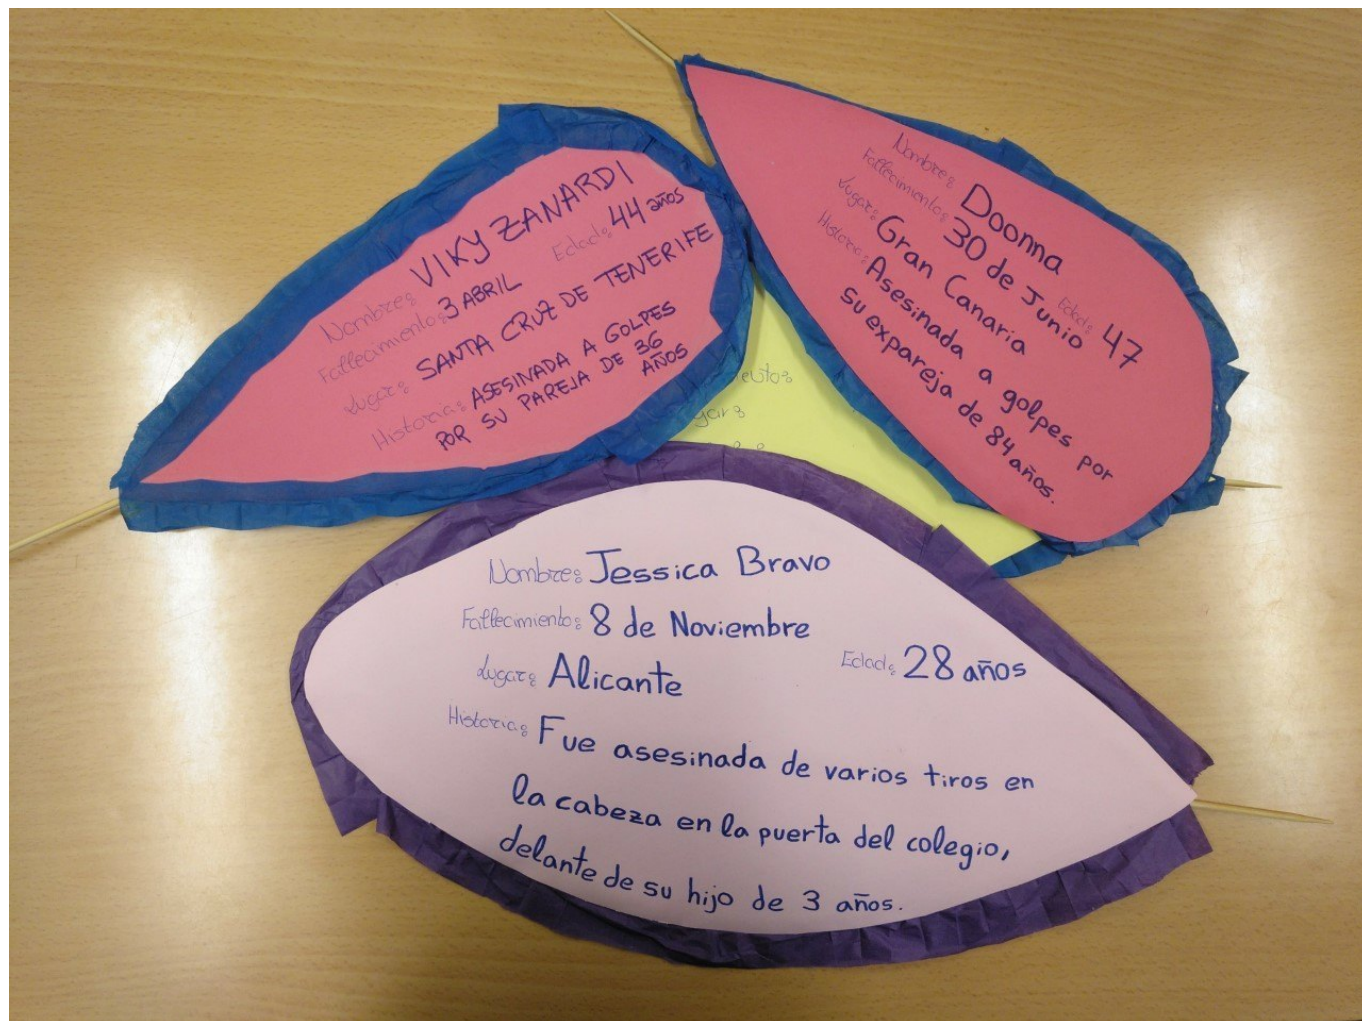 Nombre: VIKY ZANARDI
Fallecimiento: 3 ABRIL Edad: 44 años
Lugar: SANTA CRUZ DE TENERIFE
Historia: ASESINADA A GOLPES
POR SU PAREJA DE 36
AÑOS
Nombre: Doonna
Fallecimiento: 30 de Junio Edad: 47
Lugar: Gran Canaria
Historia: Asesinada a golpes por
su expareja de 84 años.
Nombre: Jessica Bravo
Fallecimiento: 8 de Noviembre
Edad: 28 años
Lugar: Alicante
Historia: Fue asesinada de varios tiros en
la cabeza en la puerta del colegio,
delante de su hijo de 3 años.